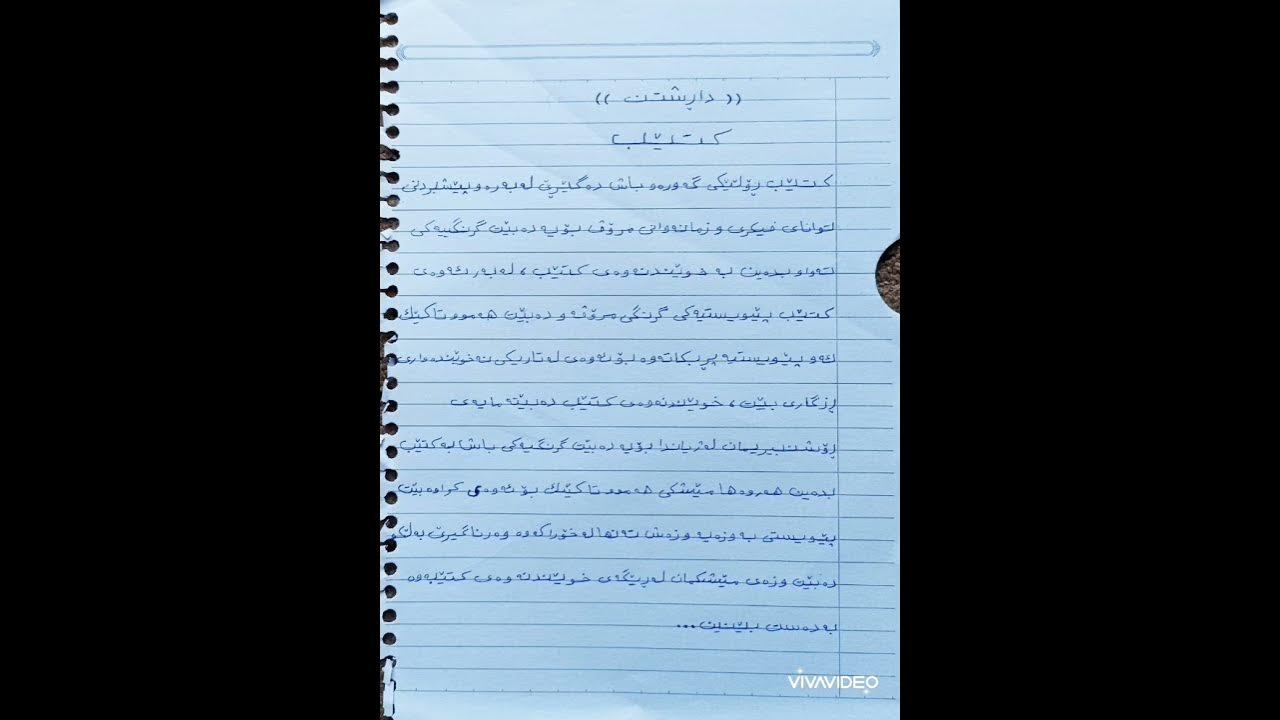 (( داڕشتن ))
کتێب
کتێب ڕۆڵێکی گەورەو باش دەگێڕێ لەبەرەوپێشبردنی
توانای فیکری وزمانەوانی مرۆڤ بۆیە دەبێت گرنگییەکی
تەواو بدەین بە خوێندنەوەی کتێب ، لەبەر ئەوەی
کتێب پێویستیەکی گرنگی مرۆڤە و دەبێت هەموو تاکێک
ئەو پێویستیە پڕبکاتەوە بۆ ئەوەی لە تاریکی نەخوێندەواری
ڕزگاری بێت ، خوێندنەوەی کتێب دەبێتە مایەی
ڕۆشنبیریمان لەژیاندا بۆیە دەبێت گرنگیەکی باش بە کتێب
بدەین هەروەها مێشکی هەموو تاکێک بۆ ئەوەی کراوەبێت
پێویستی بەوزەیە وزەش تەنها لە خۆراکەوە وەرناگیرێ بەڵکو
دەبێت وزەی مێشکمان لەڕێگەی خوێندنەوەی کتێبەوە
بەدەست بێنین...
VIVAVIDEO